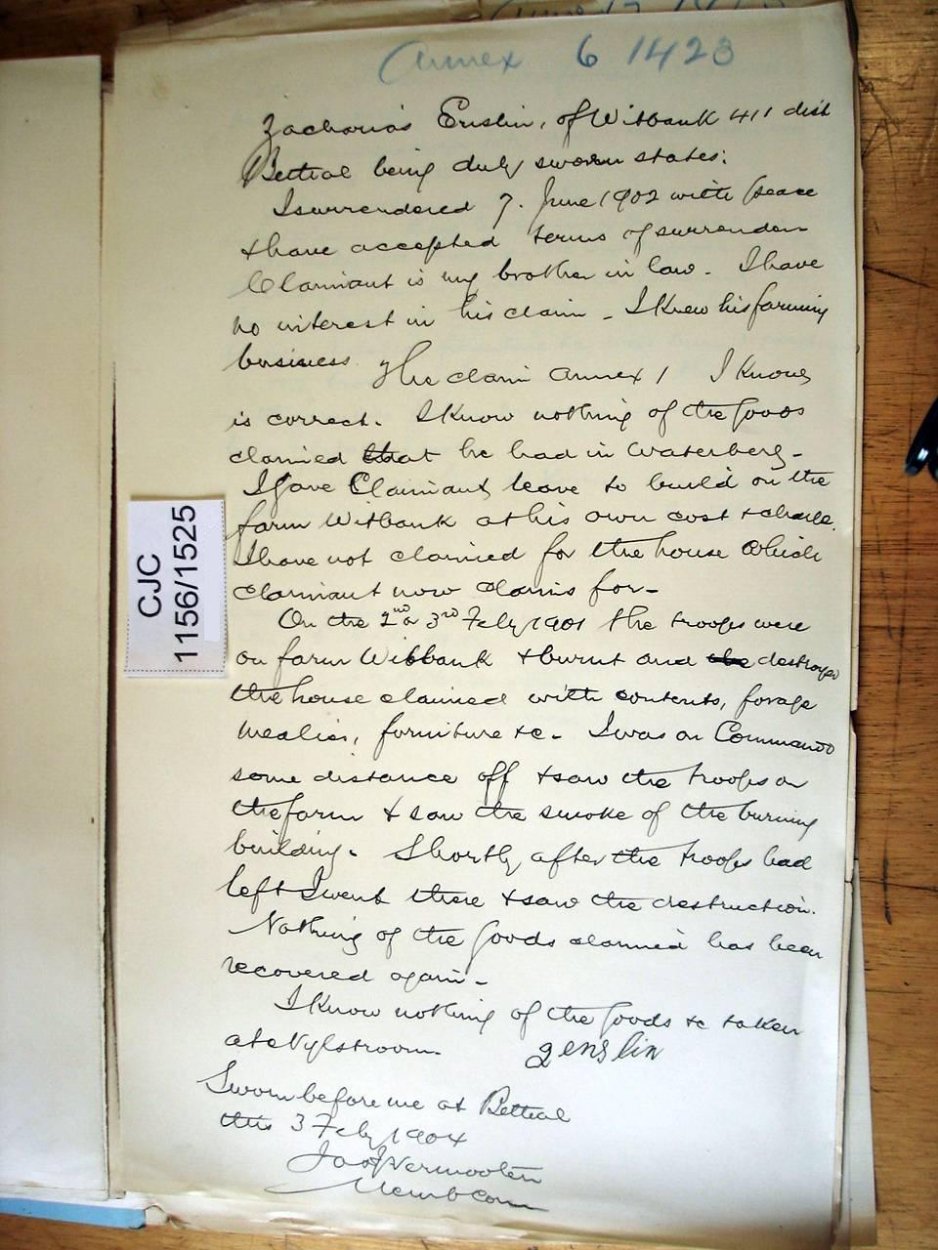 Annex 6 1423
Zacharias Enslin, of Witbank 411 dist
Bethal being duly sworn states:
I surrendered 7. June 1902 with peace
& have accepted terms of surrender
Claimant is my brother in law. I have
no interest in his claim - I knew his farming
business. The claim annex 1 I know
is correct. I know nothing of the goods
claimed that he had in Waterberg -
I gave Claimant leave to build on the
farm Witbank at his own cost &
I have not claimed for the house which
claimant now claims for -
On the 2nd or 3rd Feby 1901 the troops were
on farm Witbank & burnt and destroyed
the house claimed with contents, forage
mealies, furniture &c - I was on Commando
some distance off & saw the troops on
the farm & saw the smoke of the burning
building. Shortly after the troops had
left I went there & saw the destruction.
Nothing of the goods claimed has been
recovered again -
I know nothing of the goods &c taken
at Nylstroom. ZEnslin
Sworn before me at Bethal
this 3 Feby 1904
Vermooten
CJC
1156/1525